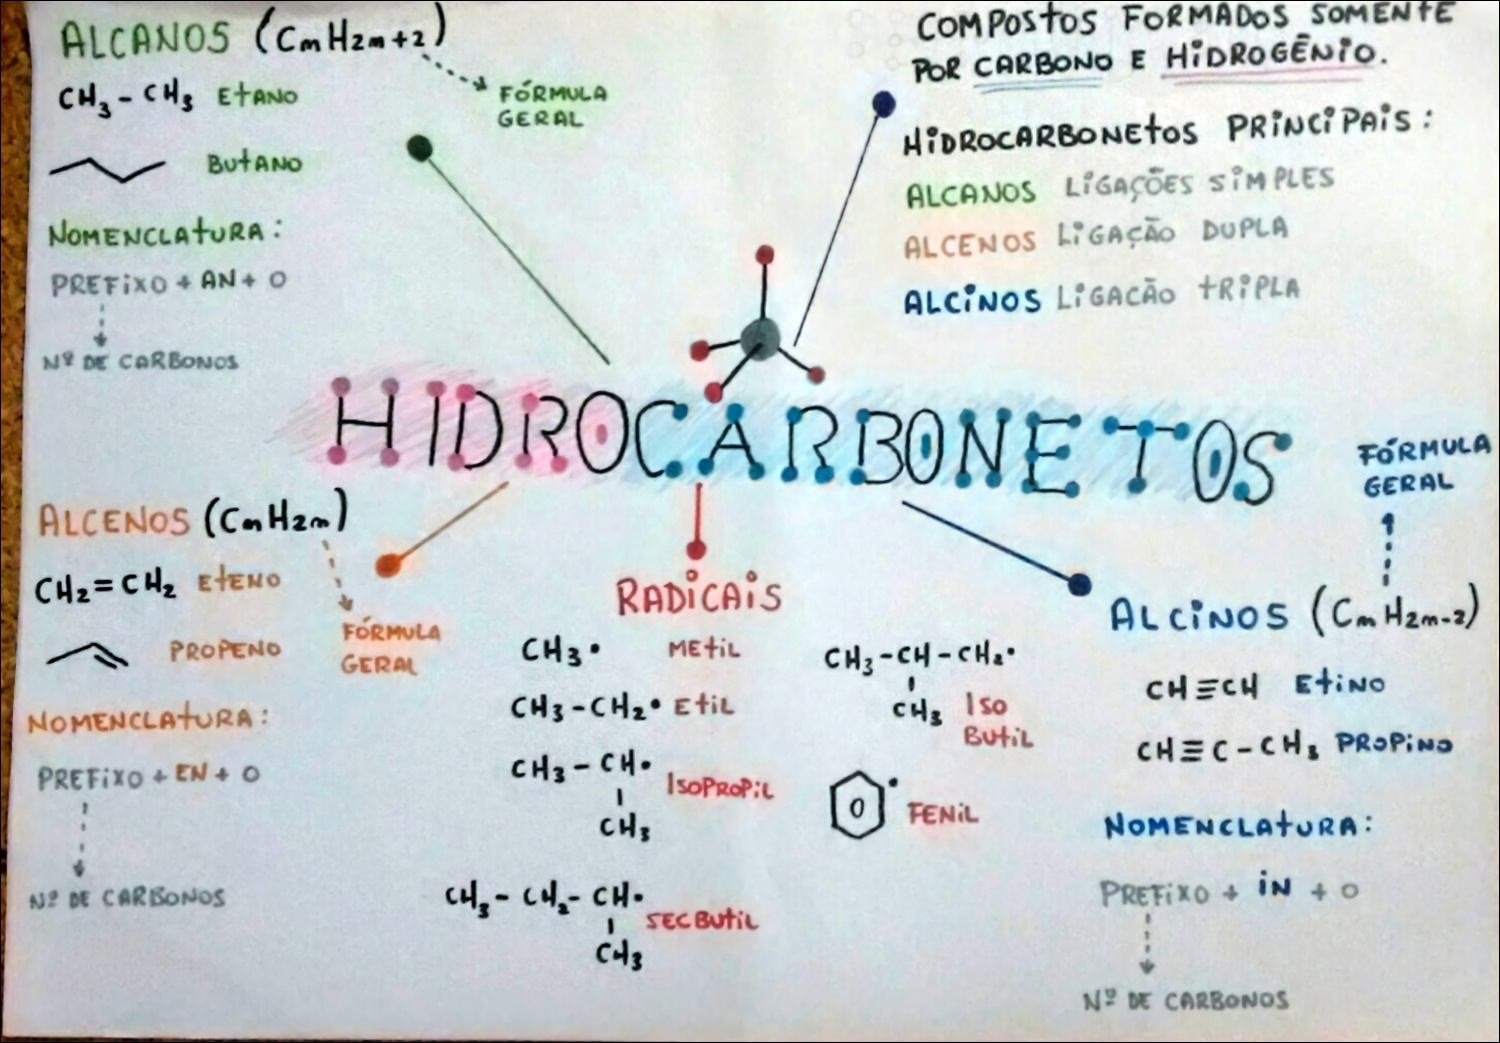 ALCANOS (CmH2m+2)
FÓRMULA
GERAL
CH3 - CH3 ETANO
BUTANO
NOMENCLATURA:
PREFIXO + AN + O
Nº DE CARBONOS
COMPOSTOS FORMADOS SOMENTE
POR CARBONO E HIDROGÊNIO.
HIDROCARBONETOS PRINCIPAIS:
ALCANOS LIGAÇÕES SIMPLES
ALCENOS LIGAÇÃO DUPLA
ALCINOS LIGACÃO TRIPLA
HIDROCARBONETOS
ALCENOS (CmH2m)
FÓRMULA
GERAL
CH2=CH2 ETENO
PROPENO
NOMENCLATURA:
PREFIXO + EN + O
Nº DE CARBONOS
RADICAIS
CH3• METIL
CH3-CH2• ETIL
CH3 - CH•
ISOPROPIL
CH3
CH3 - CH2 - CH•
SECBUTIL
CH3
CH3 - CH - CH2•
CH3 ISO
BUTIL
FENIL
FÓRMULA
GERAL
ALCINOS (CmH2m-2)
CH≡CH ETINO
CH≡C-CH3 PROPINO
NOMENCLATURA:
PREFIXO + IN + O
Nº DE CARBONOS